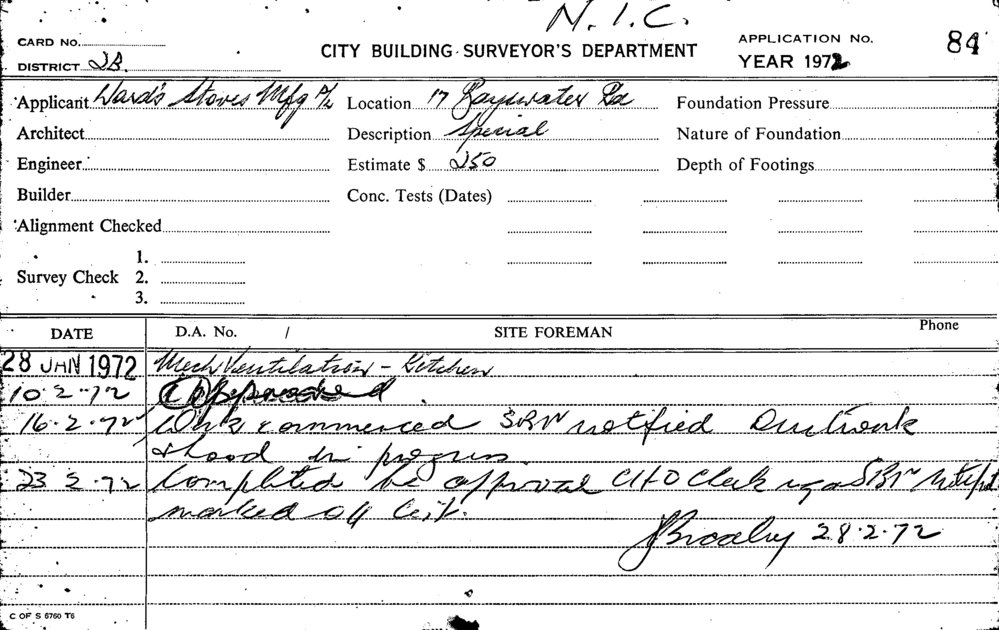 N.I.C.
CARD No.
CITY BUILDING SURVEYOR'S DEPARTMENT
APPLICATION No. 84
DISTRICT 2B.
YEAR 1972
Applicant Ward's Stoves Mfg P/L
Location 17 Bayswater Rd
Foundation Pressure
Architect
Description Special
Nature of Foundation
Engineer
Estimate $ 250
Depth of Footings
Builder
Conc. Tests (Dates)
Alignment Checked
1.
Survey Check 2.
3.
DATE D.A. No. / SITE FOREMAN Phone
28 JAN 1972 Mech Ventilation - Kitchen
10.2.72 Approved.
16.2.72 Work commenced notified Ductwork
hood in progress.
23 2.72 Completed approval CHO Check
marked off
28.2.72
C OF S 6760 T6